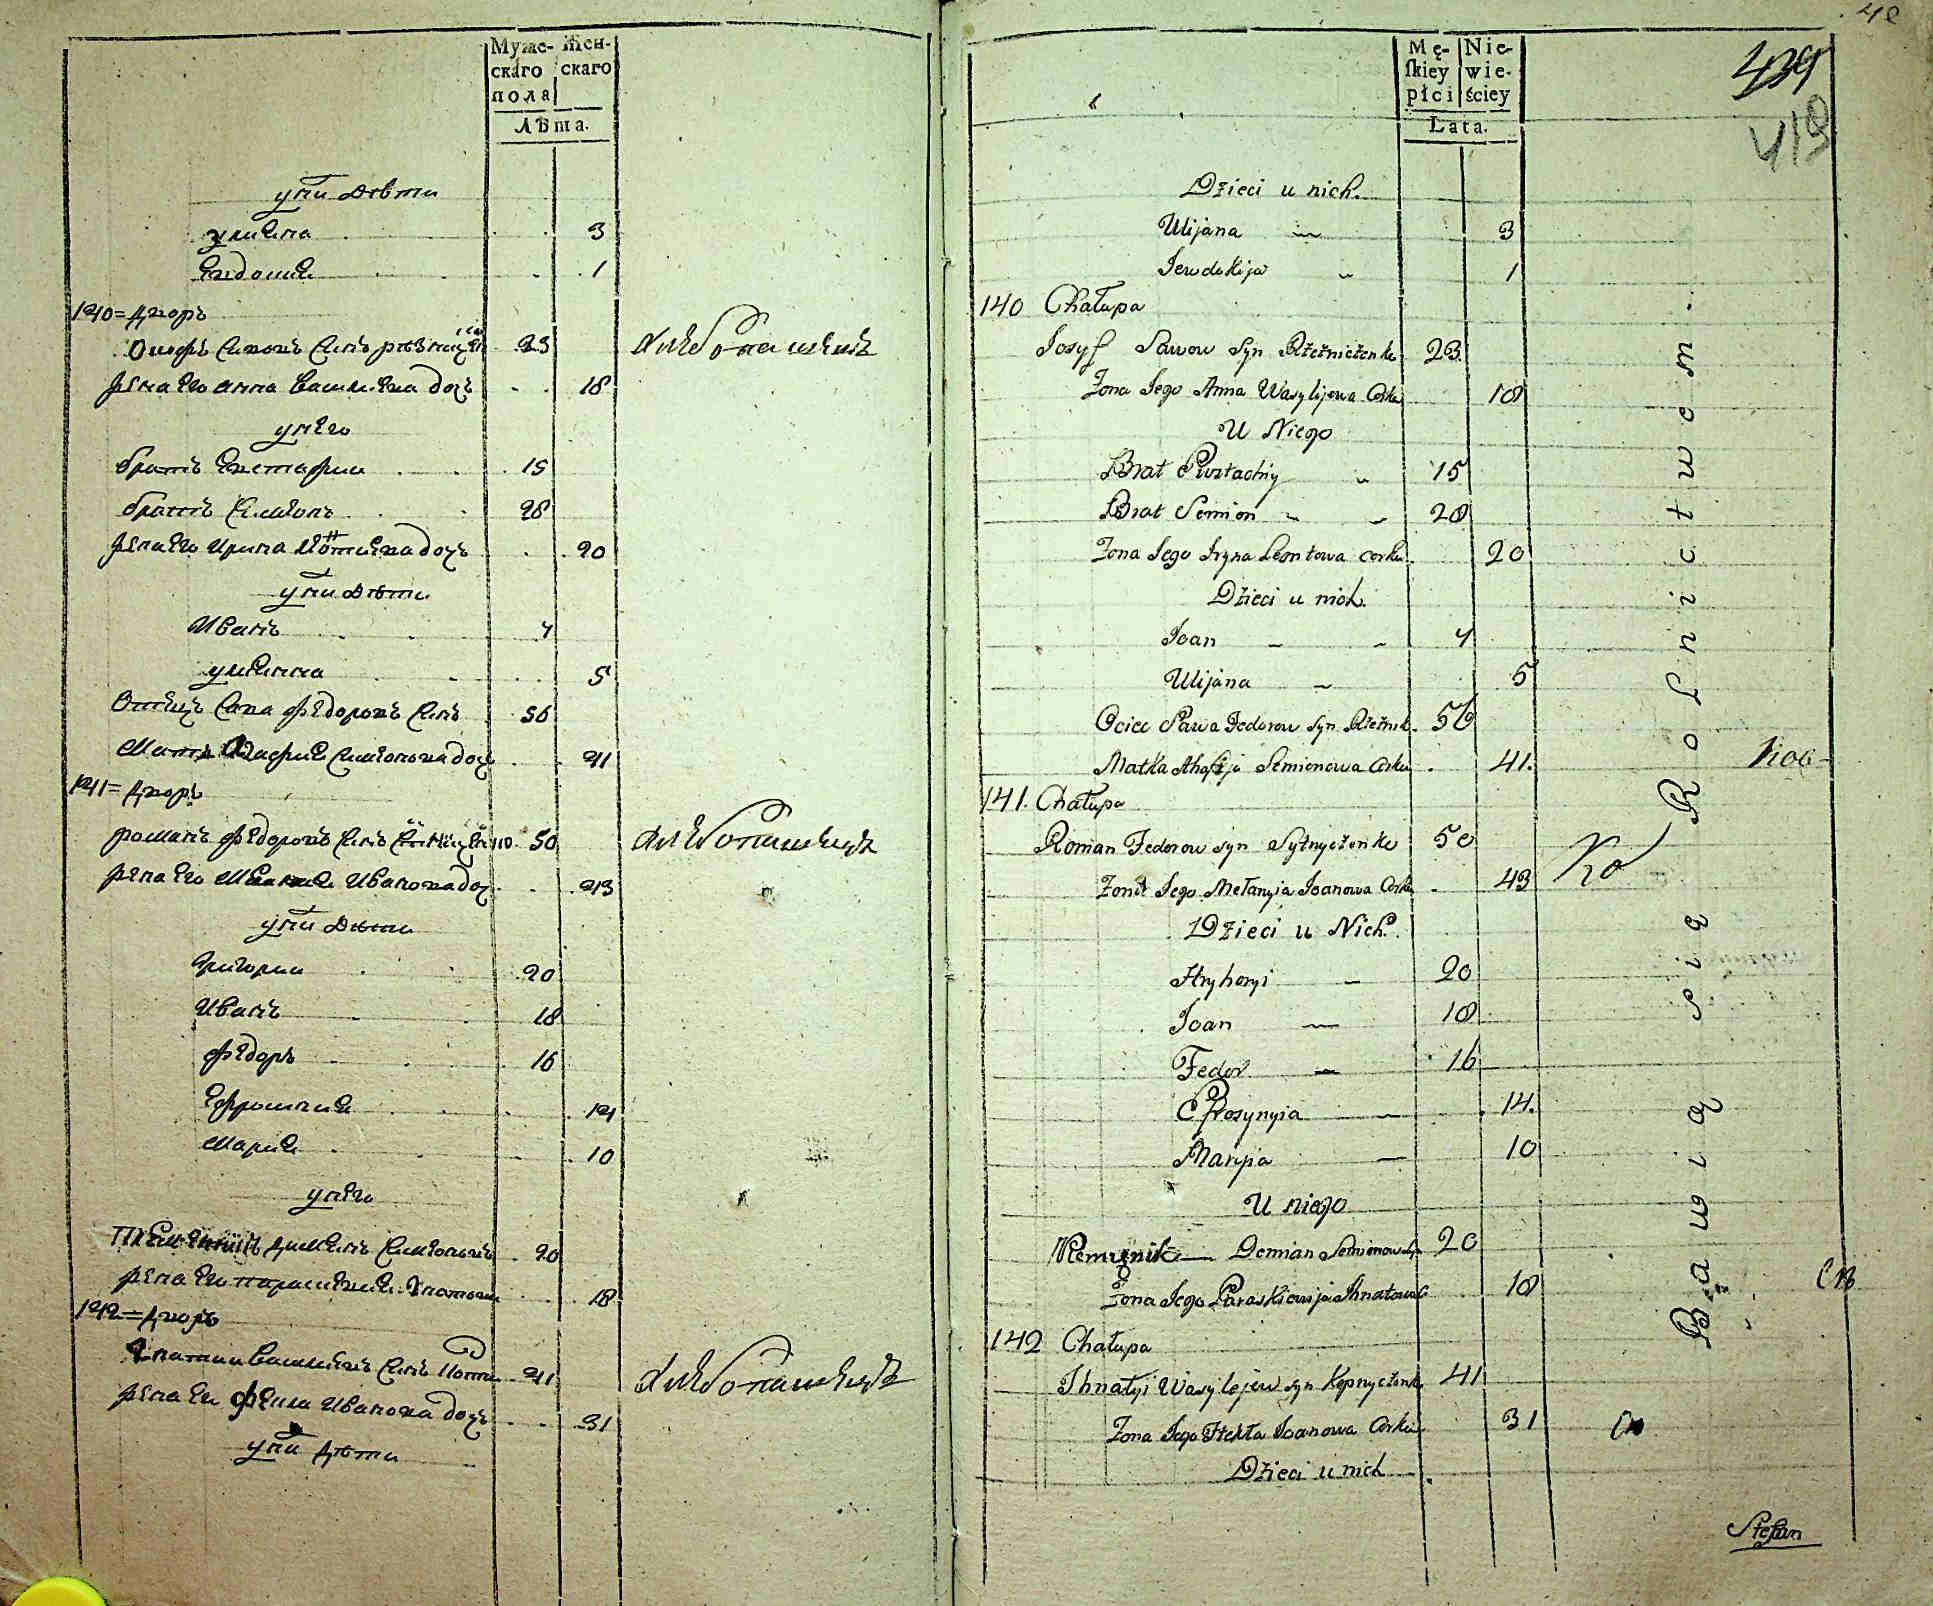 Муже- Жен-
скаго скаго
пола
Лѣта.
у ни дѣти
улияна 3
Евдокия 1
140 = дворъ
Осифъ Савовъ сынъ рѣзниченко 23 хлебопашецъ
жена его анна василиева дочъ 18
у него
братъ Евстафии 15
братъ Симионъ 28
жена его ирина леонтиева дочъ 20
у ни дѣти
Иванъ 4
улияна 5
Отецъ Сава Федоровъ сынъ 56
мать Агафия симионова дочъ 41
141 = дворъ
романъ Федоровъ сынъ 50 хлебопашецъ
жена его мелания Иванова доч 43
у ни дѣти
Григории 20
Иванъ 18
Федоръ 16
Ефросиния 14
Мария 10
у него
племенникъ димянъ симионовъ 20
жена его параскевия Игнатова 18
142 = дворъ
Игнатии василиевъ сынъ 41 хлебопашецъ
жена его Фекла Иванова дочъ 31
у ни дѣти
Mę- Nie-
skiey wie-
płci ściey
Lata.
439
419
Dzieci u nich.
Ulijana 3
Jewdokija 1
140 Chałupa
Josyf Sawow syn Rżeżniczenko 23.
Żona Jego Anna Wasylijowa Corka 18
U Niego
Brat Ewstachiy 15
Brat Semion 28
Żona Jego Iryna Leontowa corka 20
Dzieci u nich.
Joan 4
Ulijana 5
Ociec Sawa Fedorow syn Rżeżnik. 56
Matka Ahafija Semionowa Corka 41.
141. Chałupa
Roman Fedorow syn Sytnyczenko 50
Żona Jego Melanyia Joanowa Corka 43
Dzieci u Nich.
Hryhoryi 20
Joan 18
Fedor 16
Efrosynyia 14.
Maryia 10
U niego
Plemięnik Demian Semionow Syn 20
Żona Jego Paraskiewija Ihnatowa 18
142 Chałupa
Ihnatyi Wasylejew syn Kopryczenko 41
Żona Jego Tekła Joanowa Corka 31
Dzieci u nich
Bawią się Rolnictwem.
Stefan